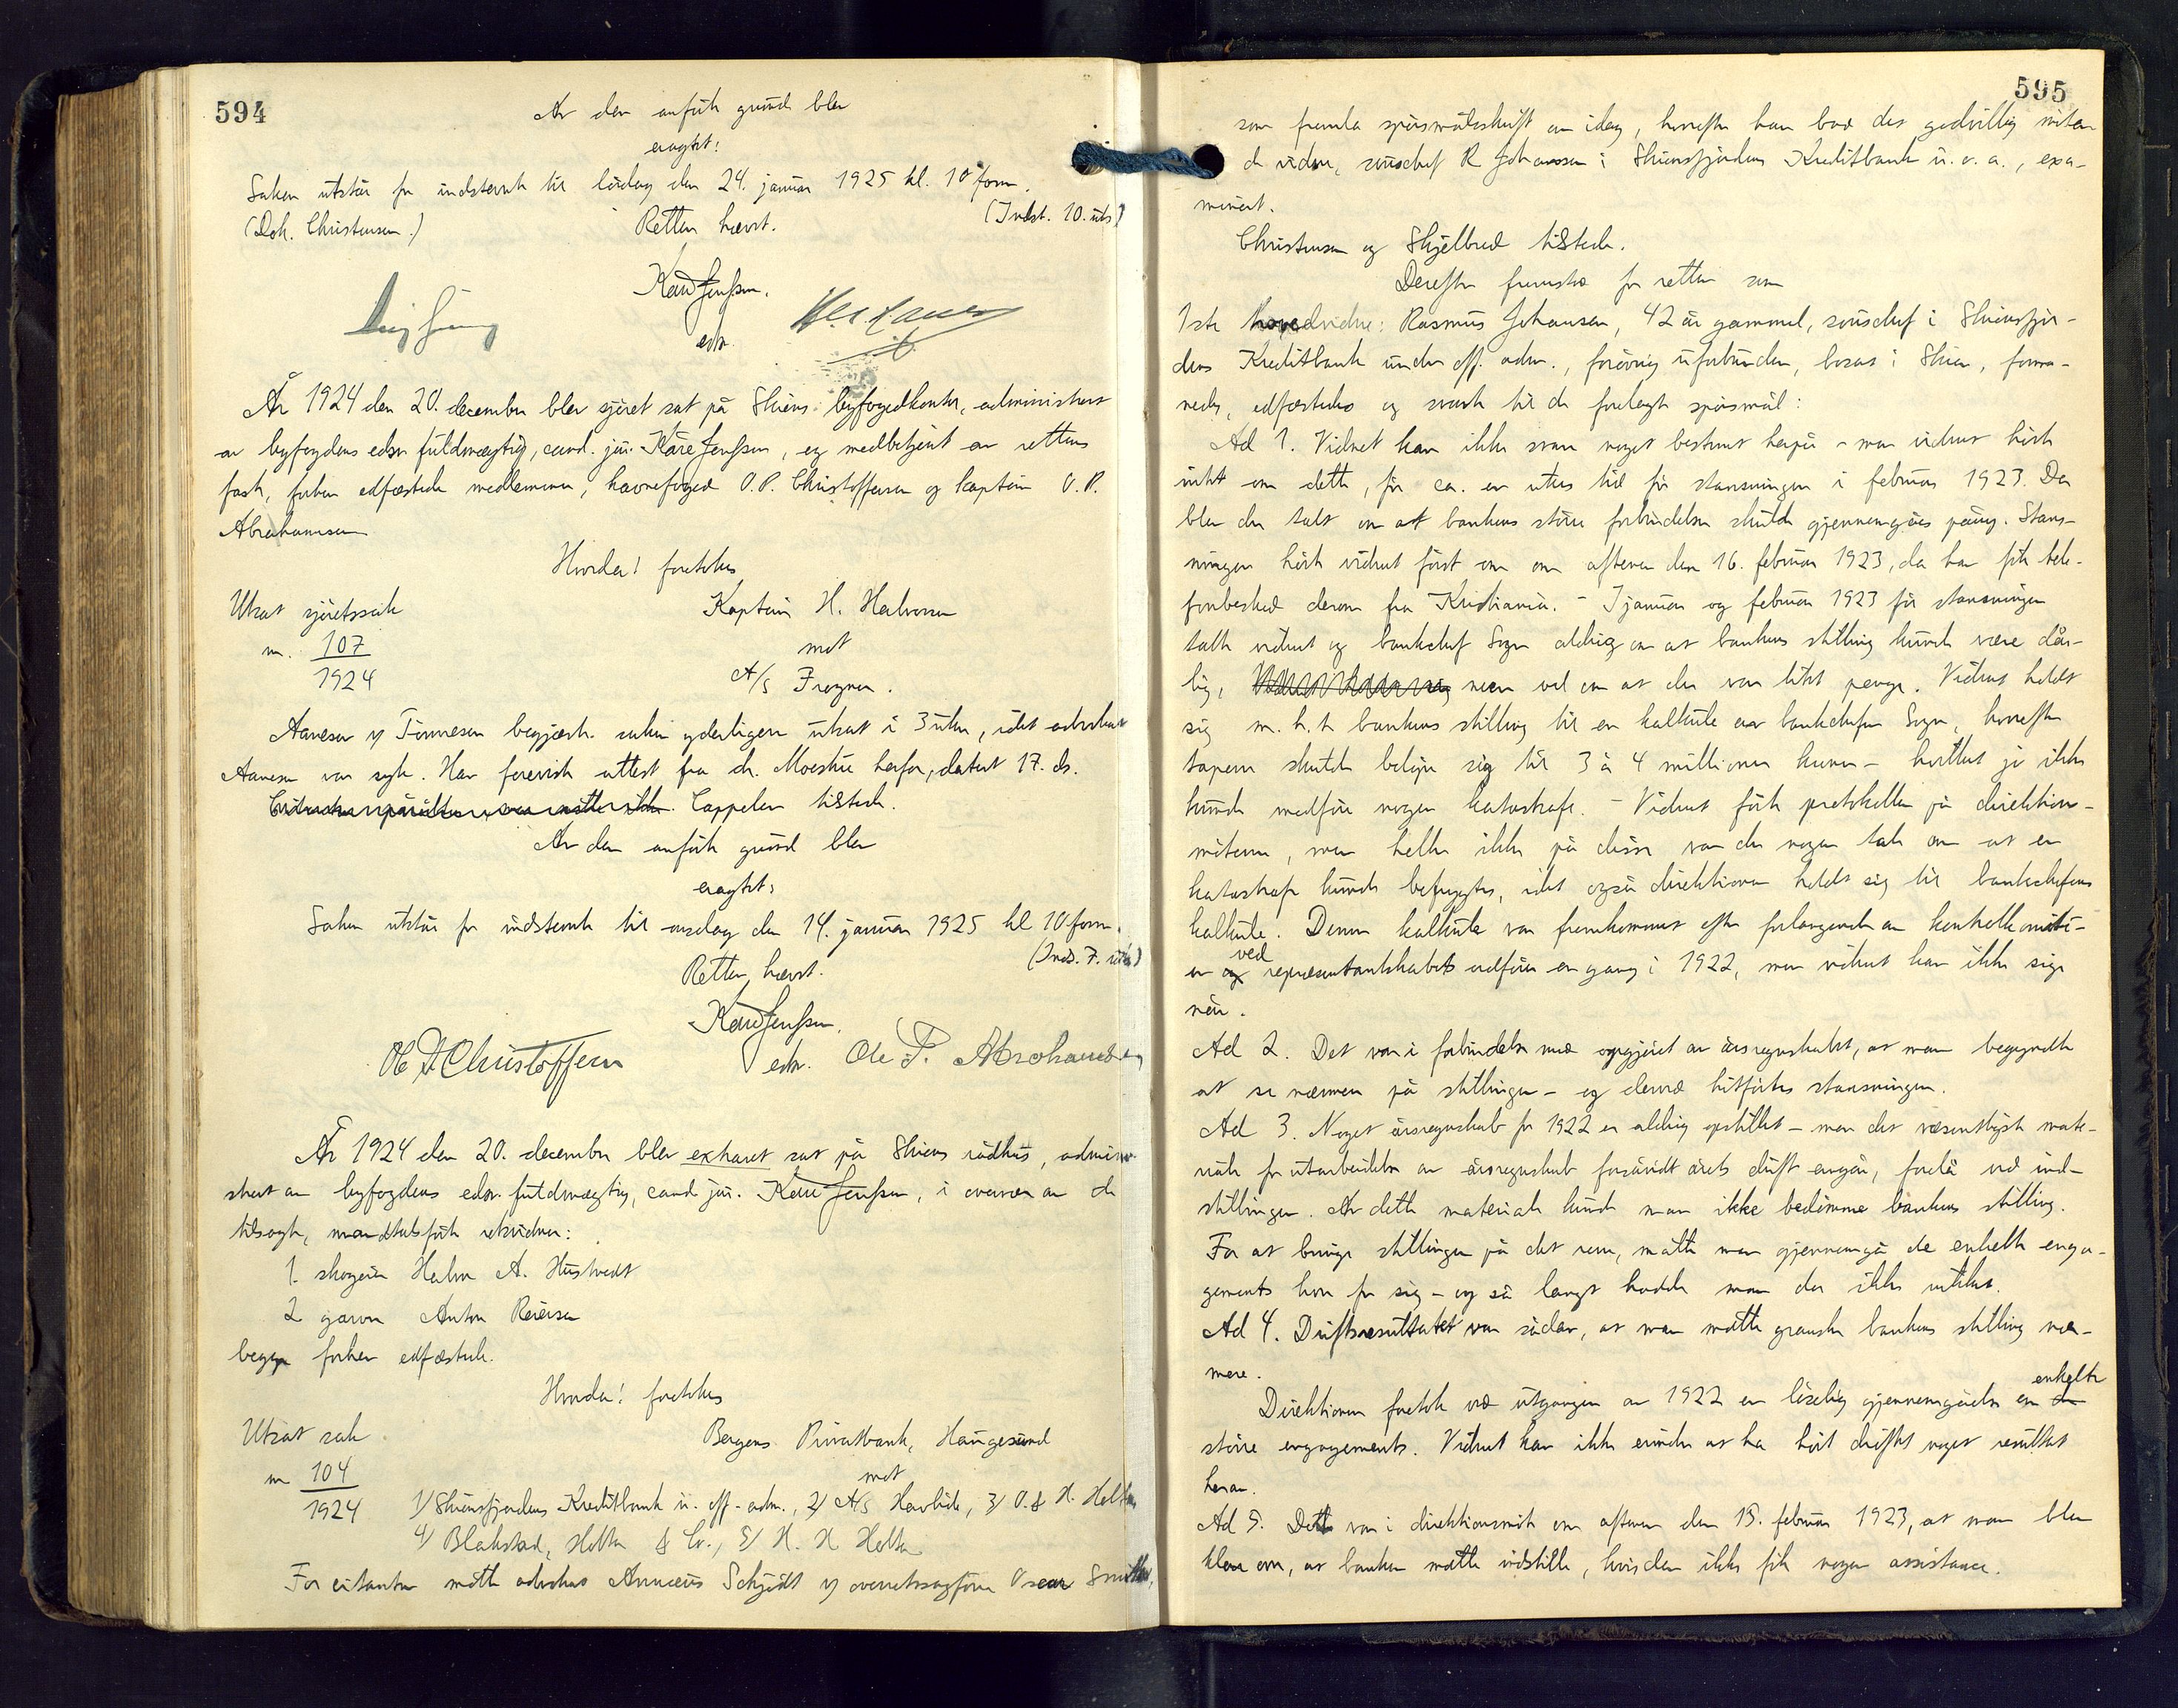 594
Av den anførte grund blev
eragtet:
Saken utstår for indstevnte til lørdag den 24. januar 1925 kl. 10 form.
(Dok. Christensen.) Retten hævet. (Indst. 10. uts)
Kåre Jenssen.
edsv.
År 1924 den 20. december blev sjøret sat på Skiens byfogedkontor, administrert
av byfogdens edsv. fuldmægtig, cand. jur. Kåre Jenssen, og medbetjent av rettens
faste, forhen edfæstede medlemmer, havnefoged O. P. Christoffersen og kaptein O. P.
Abrahamsen
Hvorda! foretokes
Utsat sjøretssak Kaptein H. Halvorsen
nr. 107 mot
1924 A/S Frogner.
Aanesen v/ Tønnesen begjærte saken yderligere utsat i 3 uker, idet advokat
Aanesen var syk. Han foreviste attest fra dr. Moestue herfor, datert 17. ds.
Cappelen tilstede.
Av den anførte grund blev
eragtet:
Saken utstår for indstevnte til onsdag den 14. januar 1925 kl 10 form.
(Inds. 7. uts)
Retten hævet.
Kåre Jenssen.
edsv.
Ole P Christoffersen Ole P. Abrahamsen
År 1924 den 20. december blev extraret sat på Skiens rådhus, admini-
strert av byfogdens edsv. fuldmægtig, cand jur. Kåre Jenssen, i overvær av de
tilsagte, mandtalsførte retsvidner:
1. skogeier Halvor A. Hustvedt
2 garver Anton Reiersen
begge forhen edfæstede.
Hvorda! foretokes
Utsat sak Bergens Privatbank, Haugesund
nr 104 mot
1924 1/ Skiensfjordens Kreditbank u. off. adm., 2/ A/S Havlide, 3/ O. & H. Holta
4/ Blakstad, Holta & Co., 5/ H. H Holta
For citanten møtte advokat Annæus Schjødt v/ overretssagfører Oscar Smith,
595
som fremla spørsmålsskrift av idag, hvorefter han bad det godvillig møten-
de vidne, souschef R Johansen i Skiensfjordens Kreditbank u. o. a., exa-
minert.
Christensen og Skjelbred tilstede.
Derefter fremstod for retten som
1ste hovedvidne: Rasmus Johansen, 42 år gammel, souschef i Skiensfjor-
dens Kreditbank under off. adm., forøvrig uforbunden, bosat i Skien, forma-
nedes, edfæstedes og svarte til de forelagte spørsmål:
Ad 1. Vidnet kan ikke svare noget bestemt herpå - men vidnet hørte
intet om dette, før ca. en ukes tid før stansningen i februar 1923. Da
blev der talt om at bankens større forbindelser skulde gjennemgåes påny. Stans-
ningen hørte vidnet først om om aftenen den 16. februar 1923, da han fik tele-
fonbesked derom fra Kristiania. - I januar og februar 1923 før stansningen
talte vidnet og bankchef Sogn aldrig om at bankens stilling kunde være dår-
lig, men vel om at der var litet penge. Vidnet holdt
sig m. h. t. bankens stilling til en kalkule av bankchefen Sogn, hvorefter
tapene skulde beløpe sig til 3 à 4 millioner kroner - hvilket jo ikke
kunde medføre nogen katastrofe. - Vidnet førte protokollen på direktions-
møterne, men heller ikke på disse var der nogen tale om at en
katastrofe kunde befryktes, idet også direktionen holdt sig til bankchefens
kalkule. Denne kalkule var fremkommet efter forlangende av kontrolkomité-
en og ved repræsentantskabets ordfører engang i 1922, men vidnet kan ikke si
når.
Ad 2. Det var i forbindelse med opgjøret av årsregnskabet, at man begyndte
at se nærmere på stillingen - og derved hitførtes stansningen.
Ad 3. Noget årsregnskab for 1922 er aldrig opstillet - men det væsentligste mate-
riale for utarbeidelse av årsregnskab forsåvidt årets drift angår, forelå ved ind-
stillingen. Av dette materiale kunde man ikke bedømme bankens stilling.
For at bringe stillingen på det rene, måtte man gjennemgå de enkelte enga-
gements hver for sig - og så langt hadde man da ikke rukket.
Ad 4. Driftsresultatet var sådan, at man måtte granske bankens stilling nær-
mere.
Direktionen foretok ved utgangen av 1922 en løselig gjennemgåelse av de enkelte
større engagements. Vidnet kan ikke erindre at ha hørt drøftet noget resultat
herav.
Ad 5. Det var i direktionsmøte om aftenen den 15. februar 1923, at man blev
klar over, at banken måtte indstille, hvis den ikke fik nogen assistance.